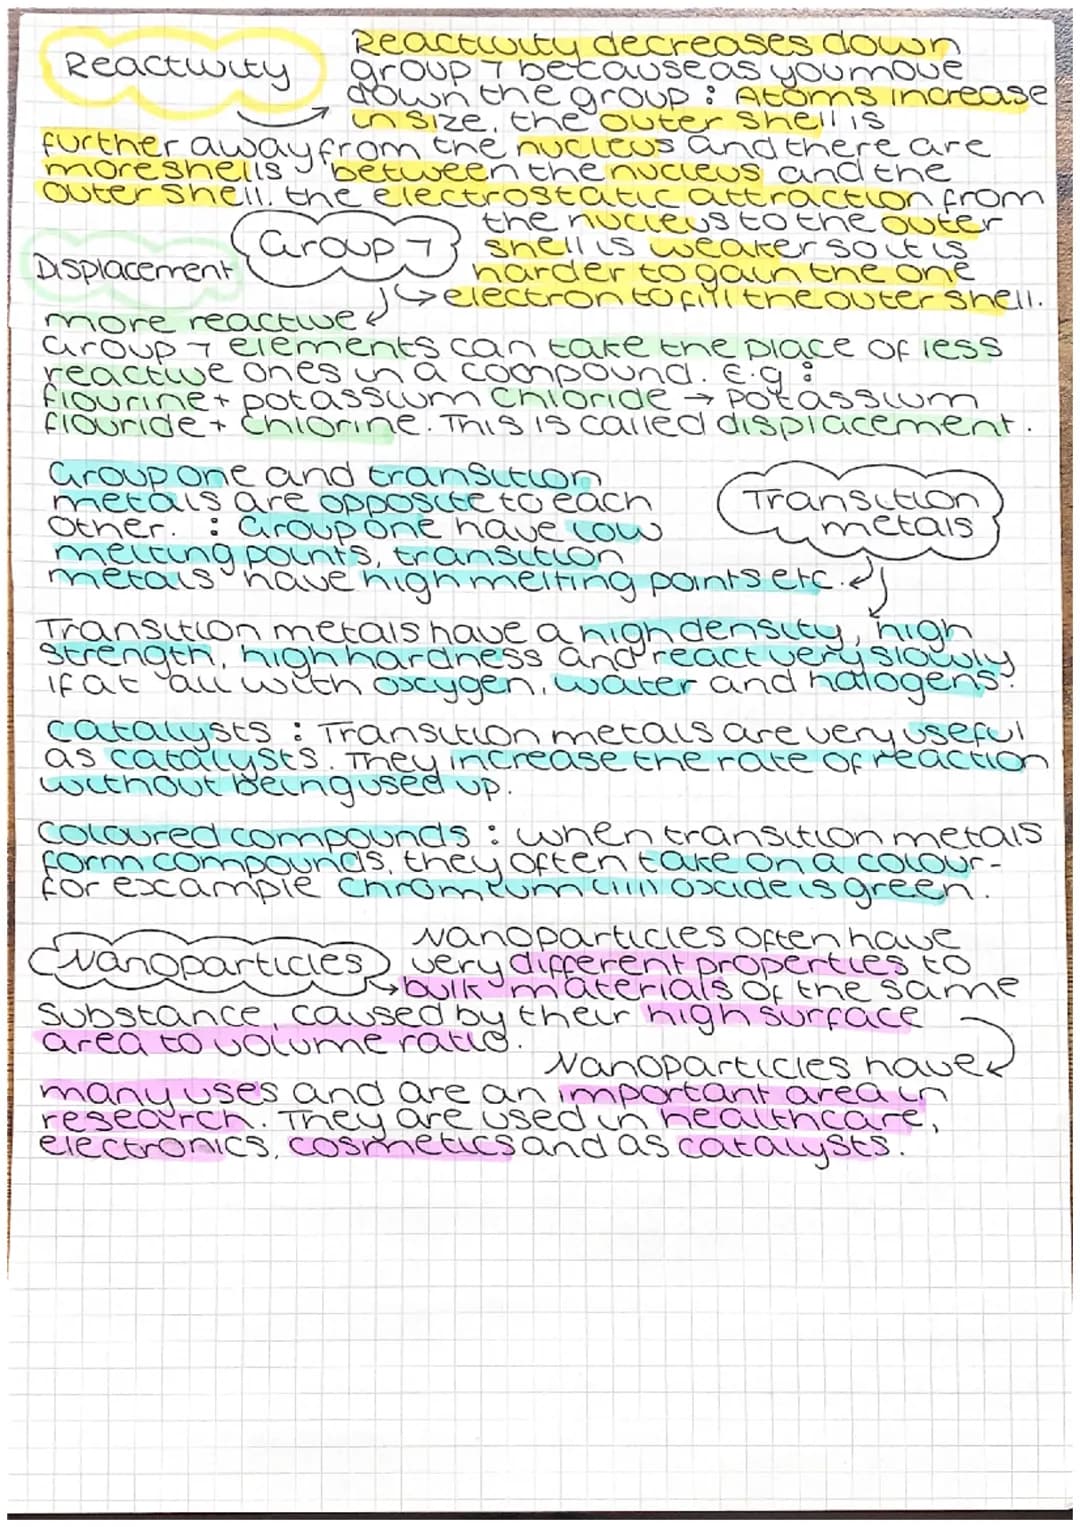 Reactivity
Reactivity decreases down
group 7 because as you move
down the group : Atoms increase
in size, the outer shell is
further away from the nucleus and there are
more shells between the nucleus and the
outer shell. the electrostatic attraction from
the nucleus to the outer
shell is weaker so it is
harder to gain the one
electron to fill the outer shell.
Group 7
Displacement
more reactive
Group 7 elements can take the place of less
reactive ones in a compound. E.g :
flourine + potassium chloride → potassium
flouride + chlorine. This is called displacement.
Group one and transition
metals are opposite to each
other. : Group one have low
melting points, transition
metals have high melting points etc.
Transition
metals
Transition metals have a high density, high
strength, high hardness and react very slowly
if at all with oxygen, water and halogens.
catalysts : Transition metals are very useful
as catalysts. They increase the rate of reaction
without being used up.
Coloured compounds : when transition metals
form compounds, they often take on a colour-
for example chromium (III) oxide is green.
Nanoparticles
Nanoparticles often have
very different properties to
bulk materials of the same
substance, caused by their high surface
area to volume ratio.
Nanoparticles have
many uses and are an important area in
research. They are used in healthcare,
electronics, cosmetics and as catalysts.